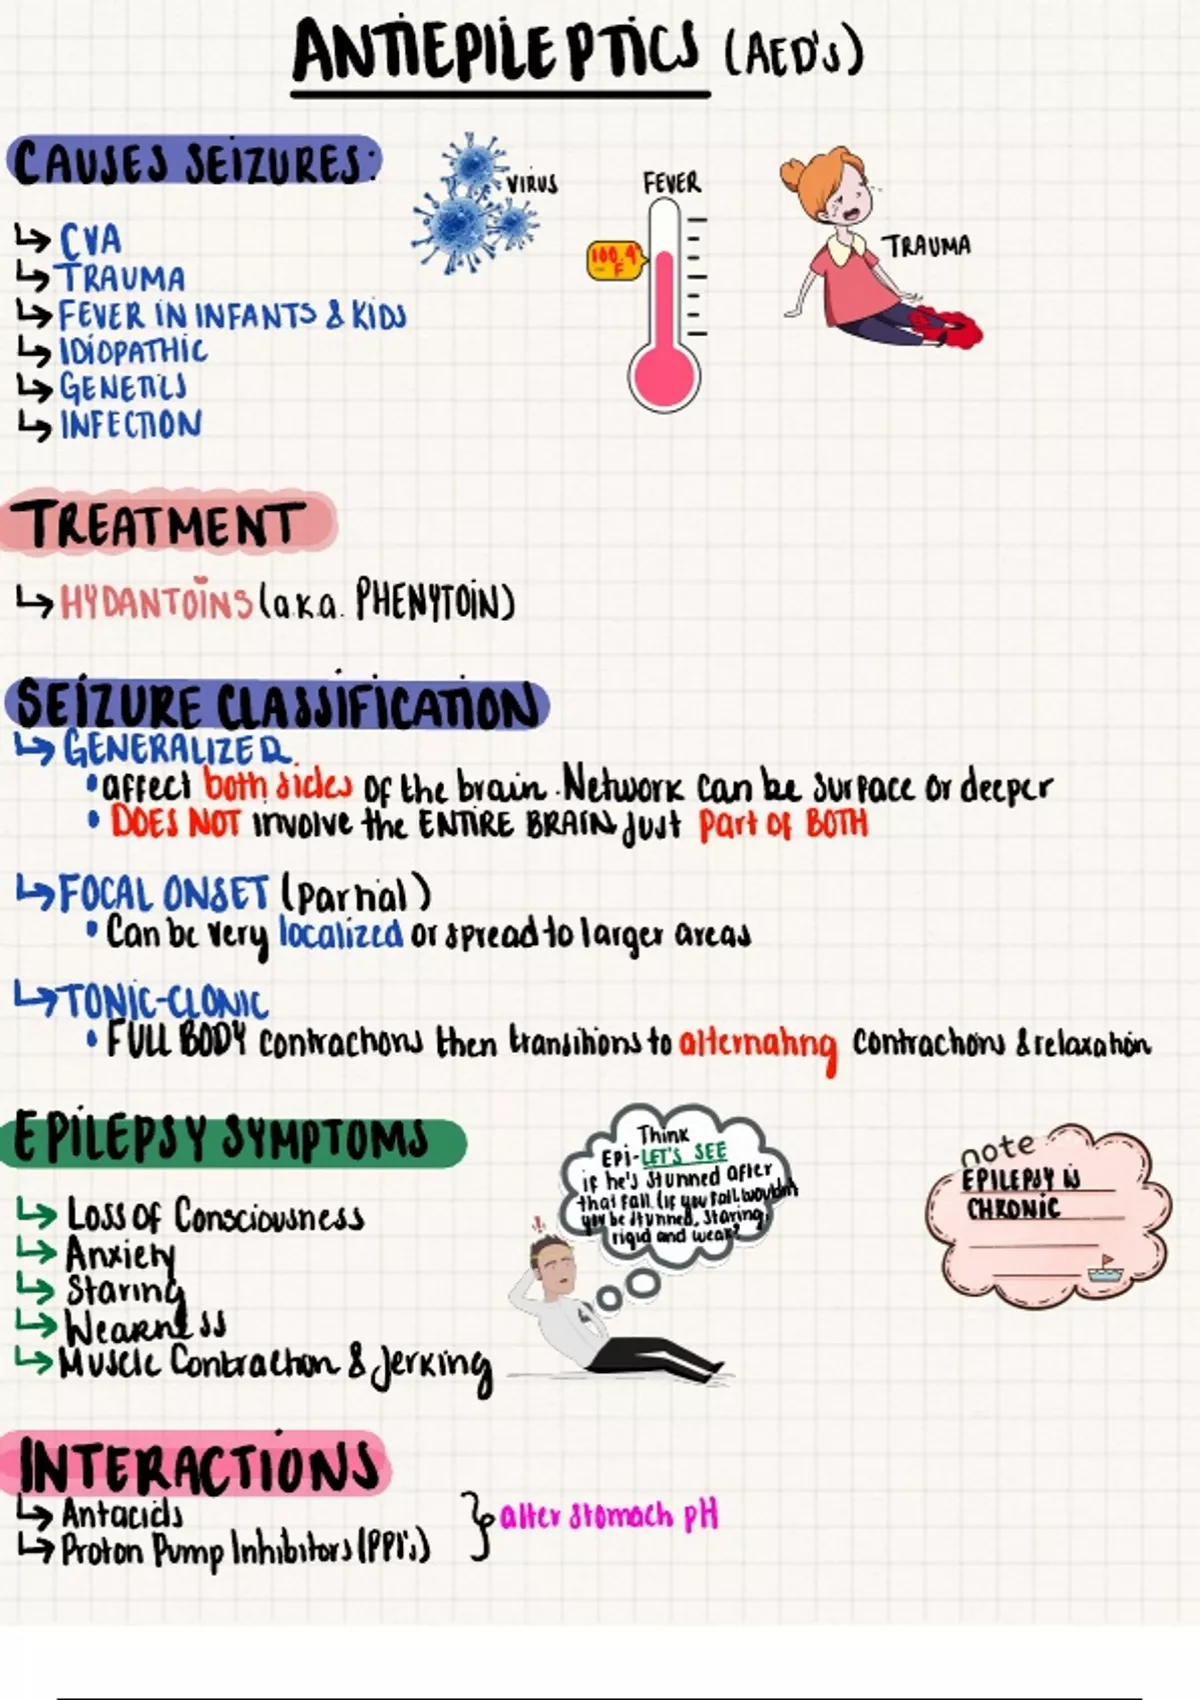 ANTIEPILEPTICS (AED's)
CAUSES SEIZURES:
VIRUS
FEVER
100.4°F
TRAUMA
↳ CVA
↳ TRAUMA
↳ FEVER IN INFANTS & KIDS
↳ IDIOPATHIC
↳ GENETICS
↳ INFECTION
TREATMENT
↳ HYDANTOINS (a.k.a. PHENYTOIN)
SEIZURE CLASSIFICATION
↳ GENERALIZED
• affect both sides of the brain. Network can be surface or deeper
• DOES NOT involve the ENTIRE BRAIN just part of BOTH
↳ FOCAL ONSET (partial)
• Can be very localized or spread to larger areas
↳ TONIC-CLONIC
• FULL BODY contractions then transitions to alternating contractions & relaxation
EPILEPSY SYMPTOMS
↳ Loss of Consciousness
↳ Anxiety
↳ Staring
↳ Weakness
↳ Muscle Contraction & Jerking
Think
EPI-LET'S SEE
if he's stunned after
that fall. (if you fall wouldn't
you be stunned, staring,
rigid and weak?
note
EPILEPSY IS
CHRONIC
INTERACTIONS
↳ Antacids
↳ Proton Pump Inhibitors (PPI's)
alter stomach pH